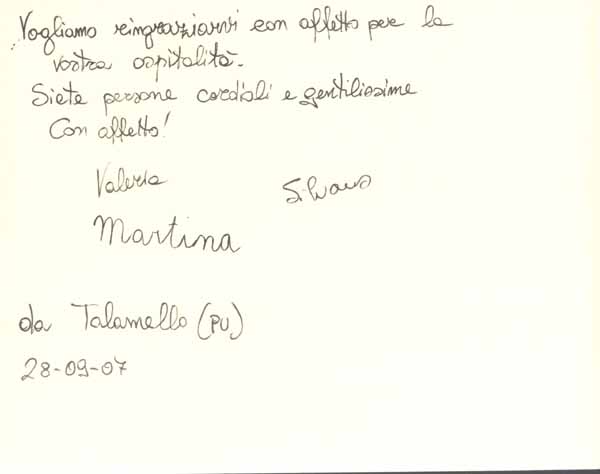 Vogliamo ringraziarvi con affetto per la
vostra ospitalità.
Siete persone cordiali e gentilissime
Con affetto!
Valeria
Silvano
Martina
da Talamello (PU)
28-09-07